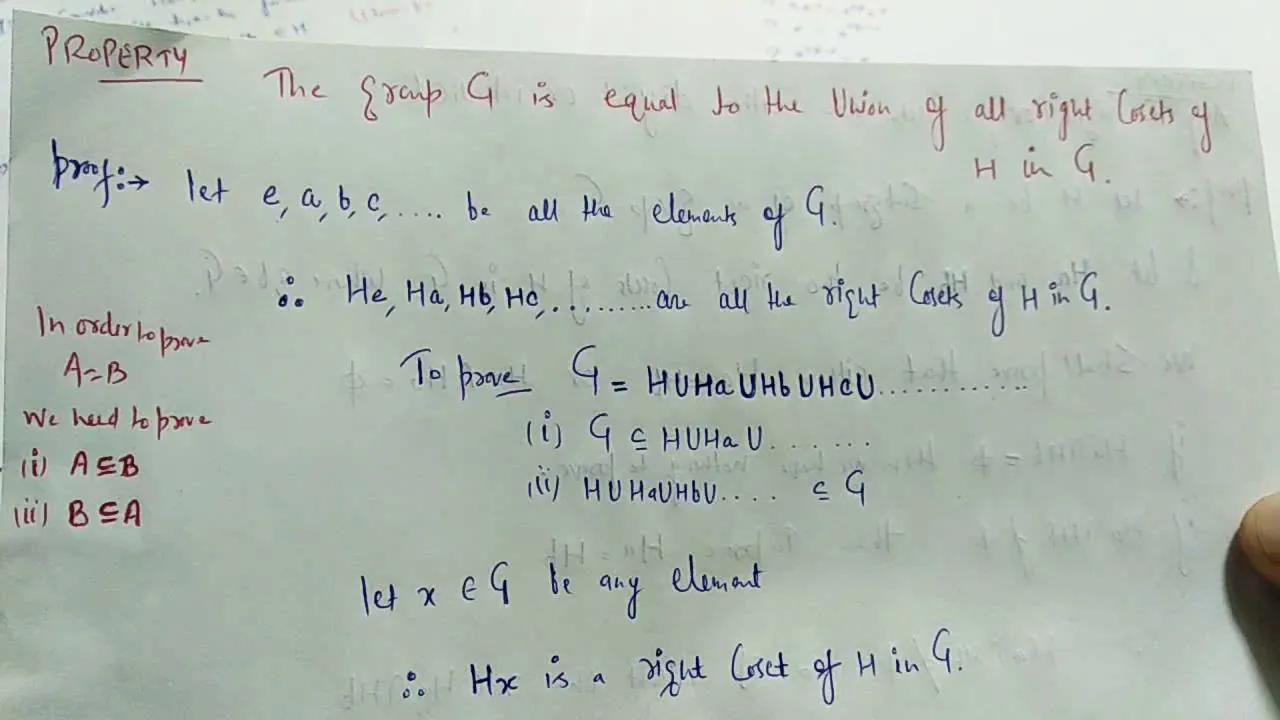 PROPERTY
The group G is equal to the Union of all right Cosets of
H in G.
proof:→ let e, a, b, c, .... be all the elements of G.
∴ He, Ha, Hb, Hc, .......... are all the right Cosets of H in G.
In order to prove
A=B
We need to prove
(i) A⊆B
(ii) B⊆A
To prove G = HUHaUHbUHcU............
(i) G ⊆ HUHaU.......
(ii) HUHaUHbU.... ⊆ G
let x ∈ G be any element
∴ Hx is a right Coset of H in G.